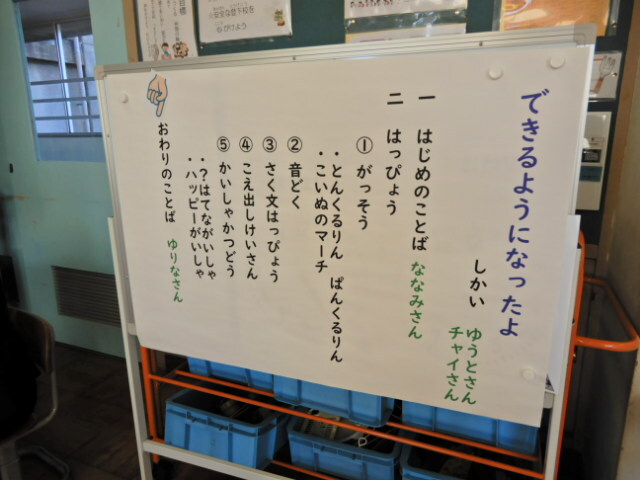 できるようになったよ
しかい ゆうとさん
チャイさん
一 はじめのことば ななみさん
二 はっぴょう
①がっそう
・とんくるりん ぱんくるりん
・こいぬのマーチ
②音どく
③さく文はっぴょう
④こえ出しけいさん
⑤かいしゃかつどう
・?はてながいしゃ
・ハッピーがいしゃ
おわりのことば ゆりなさん